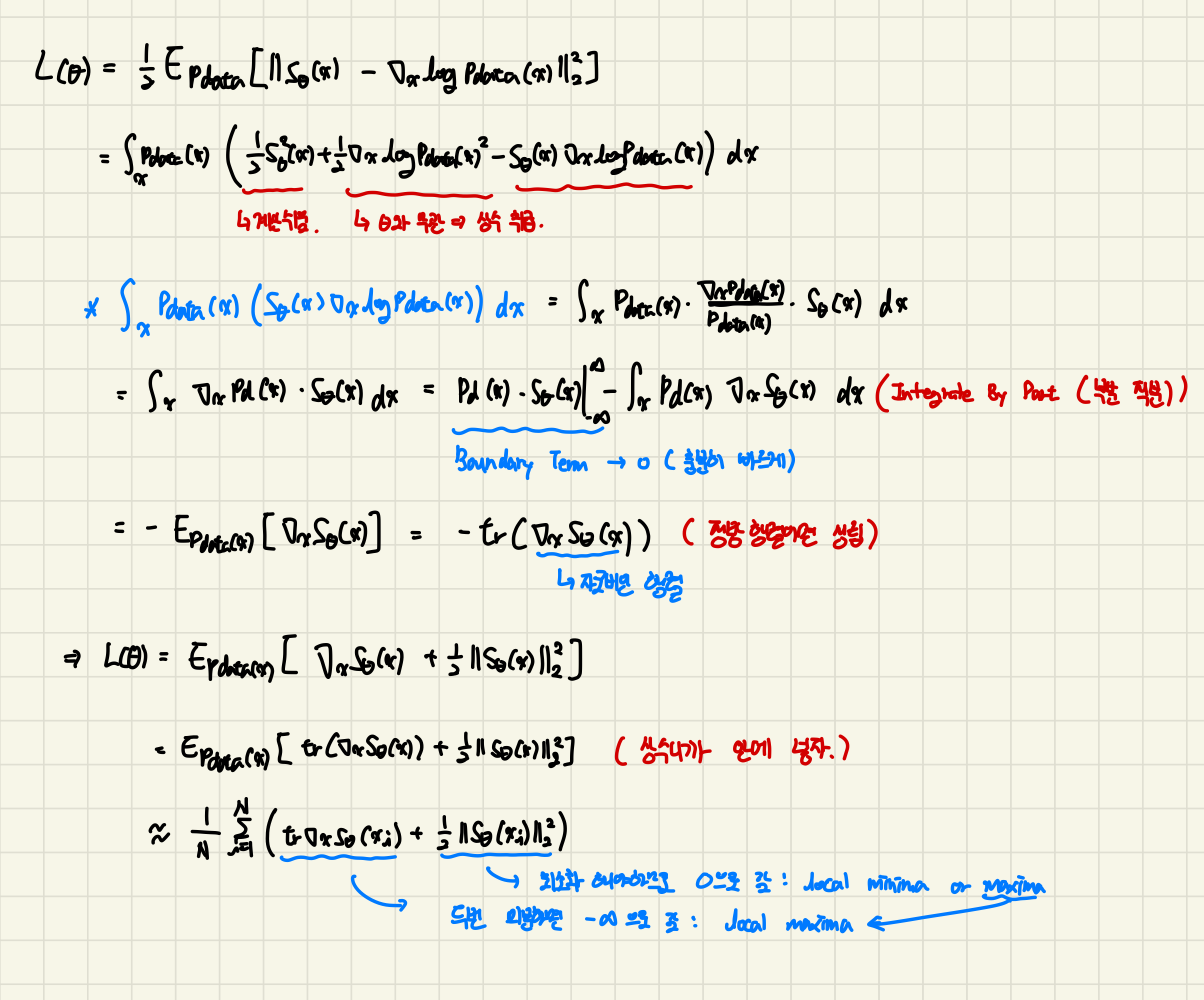 L(θ) = 1/2 E_Pdata [ ||S_θ(x) - ∇_x log Pdata(x)||₂² ]
= ∫_x Pdata(x) ( 1/2 S_θ²(x) + 1/2 ∇_x log Pdata(x)² - S_θ(x) ∇_x log Pdata(x) ) dx
↳ 계산 쉬움. ↳ θ와 무관 ⇒ 상수 취급.
* ∫_x Pdata(x) ( S_θ(x) ∇_x log Pdata(x) ) dx = ∫_x Pdata(x) · ∇_x Pdata(x) / Pdata(x) · S_θ(x) dx
= ∫_x ∇_x Pd(x) · S_θ(x) dx = Pd(x) · S_θ(x) |_{-∞}^{∞} - ∫_x Pd(x) ∇_x S_θ(x) dx ( Integrate By Part ( 부분 적분 ) )
Boundary Term → 0 ( 충분히 빠르게 )
= - E_Pdata(x) [ ∇_x S_θ(x) ] = - tr ( ∇_x S_θ(x) ) ( 정방 행렬이면 성립 )
↳ 자코비안 행렬
⇒ L(θ) = E_Pdata(x) [ ∇_x S_θ(x) + 1/2 ||S_θ(x)||₂² ]
= E_Pdata(x) [ tr(∇_x S_θ(x)) + 1/2 ||S_θ(x)||₂² ] ( 상수니까 안에 넣자. )
≈ 1/N Σ_{i=1}^{N} ( tr ∇_x S_θ(x_i) + 1/2 ||S_θ(x_i)||₂² )
→ 최소화 해야하므로 0으로 감 : local minima or maxima
→ 두번 미분하면 -∞ 으로 감 : local maxima ←